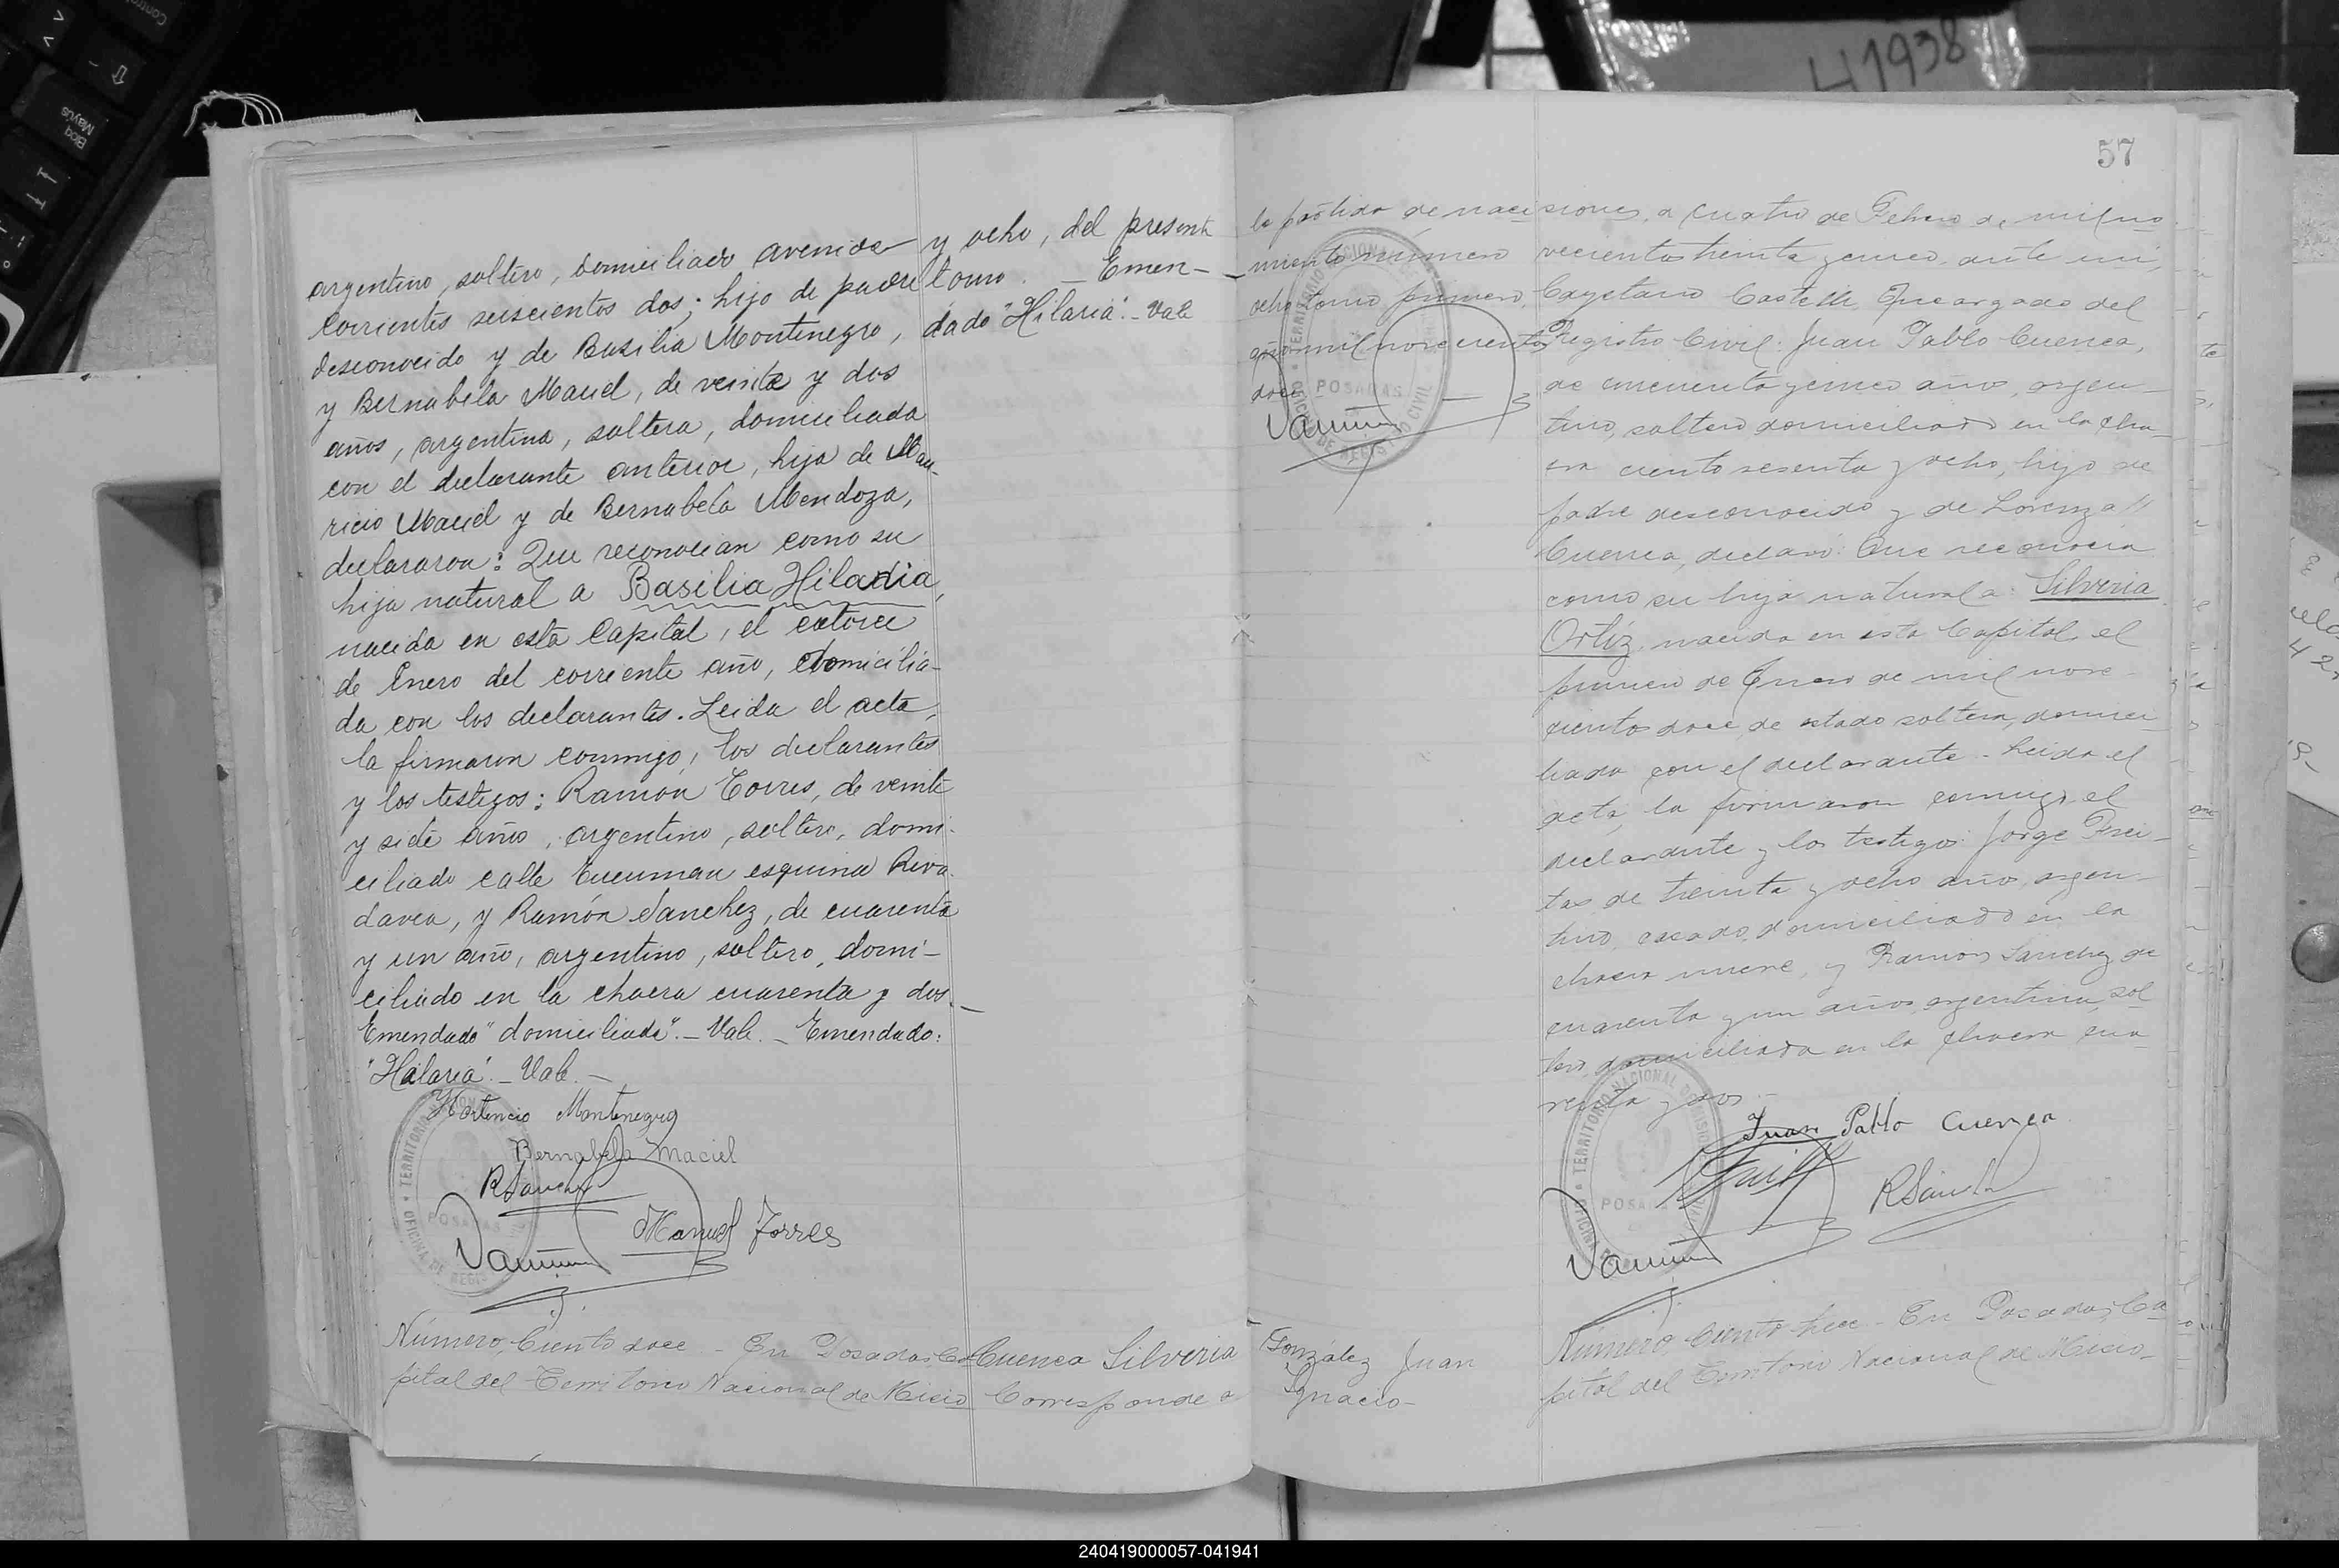 argentino, soltero, domiciliado avenida
Corrientes seiscientos dos; hijo de padre
desconocido y de Basilia Montenegro,
y Bernabela Maciel, de veinte y dos
años, argentina, soltera, domiciliada
con el declarante anterior, hija de Mau-
ricio Maciel y de Bernabela Mendoza,
declararon: Que reconocian como su
hija natural a Basilia Hilaria,
nacida en esta Capital, el catorce
de Enero del corriente año, domicilia-
da con los declarantes. Leida el acta,
la firmaron conmigo, los declarantes
y los testigos: Ramón Torres, de veinte
y siete años, argentino, soltero, domi-
ciliado calle Tucuman esquina Riva-
davia, y Ramón Sanchez, de cuarenta
y un año, argentino, soltero, domi-
ciliado en la chacra cuarenta y dos.-
Emendado "domiciliada".- Vale.- Emendado:
"Hilaria".- Vale.-
Hortencio Montenegro
Bernabela Maciel
RSanchez
Manuel Torres
TERRITORIO NACIONAL
POSADAS
OFICINA DE REGISTRO CIVIL
y ocho, del presente
tomo. - Emen-
dado "Hilaria".- Vale
Número, Ciento doce - En Posadas, Ca
pital del Territorio Nacional de Misio
Cuenca Silveria
Corresponde a
57
la partida de naci
miento número
ocho tomo primero,
año mil novecientos
doce
TERRITORIO NACIONAL
POSADAS
OFICINA DE REGISTRO CIVIL
siones, a cuatro de Febrero de mil no
vecientos treinta y cinco, ante mi,
Cayetano Castelli, Encargado del
Registro Civil: Juan Pablo Cuenca,
de cincuenta y cinco años, argen-
tino, soltero domiciliado en la cha-
cra ciento sesenta y ocho, hijo de
padre desconocido y de Lorenza //
Cuenca, declaró: Que reconocia
como su hija natural a: Silveria
Ortíz, nacida en esta Capital, el
primero de Enero de mil nove-
cientos doce, de estado soltera, domici-
liada con el declarante - Leida el
acta, la firmaron conmigo el
declarante y los testigos: Jorge Frei-
tas de treinta y ocho años, argen-
tino, casado, domiciliado en la
chacra nueve, y Ramon Sanchez, de
cuarenta y un años, argentino, sol
tero, domiciliado en la chacra cua-
renta y dos -
Juan Pablo Cuenca
RSanch
TERRITORIO NACIONAL DE MISIONES
POSADAS
OFICINA
González Juan
Ignacio-
Número, Ciento trece - En Posadas, Ca
pital del Territorio Nacional de Misio
41938
Control
Bloq
Mayús
240419000057-041941